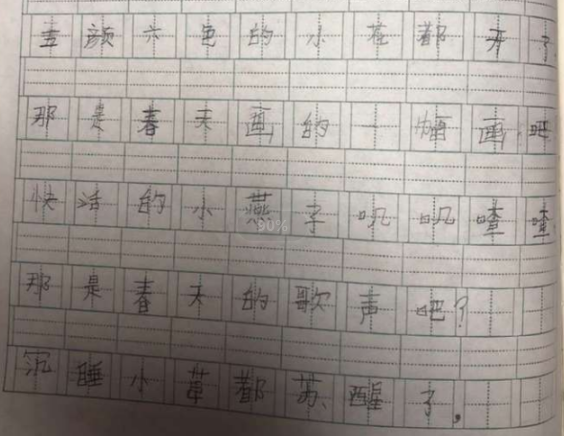 五颜六色的小花都开了
那是春天画的一幅画吧
快活的小燕子叽叽喳喳
那是春天的歌声吧?
沉睡小草都苏醒了,